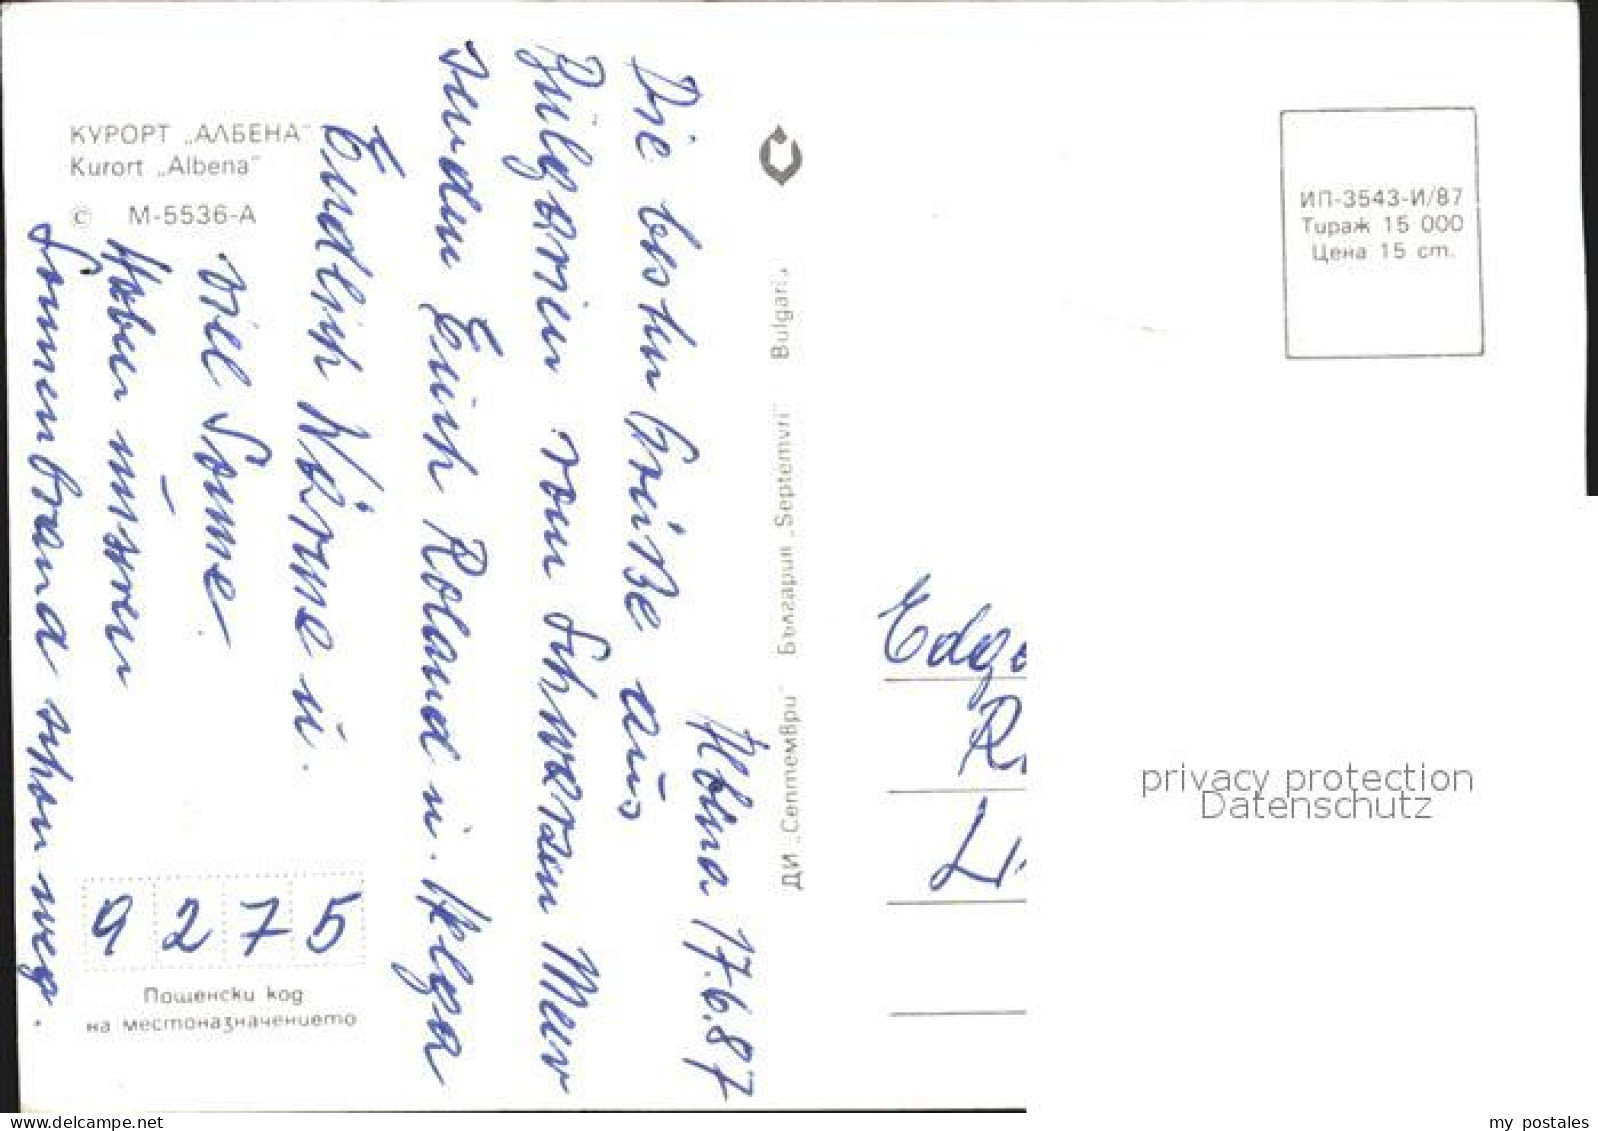 КУРОРТ „АЛБЕНА"
Kurort „Albena"
© М-5536-А
Albena 17.6.87
Die besten Grüße aus
Bulgarien vom Schwarzen Meer
senden Euch Roland u. Helga
Endlich Wärme u.
viel Sonne.
Haben unseren
Sonnenbrand schon weg.
9 2 7 5
Пощенски код
на местоназначението
ДИ „Септември" България „Septemvri" Bulgaria
ИП-3543-И/87
Тираж 15 000
Цена 15 ст.
Edga
R
Li
privacy protection
Datenschutz
delcampe.net
my_postales